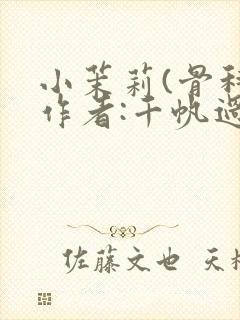 小茉莉(骨科
作者:千帆过
佐藤文也 天